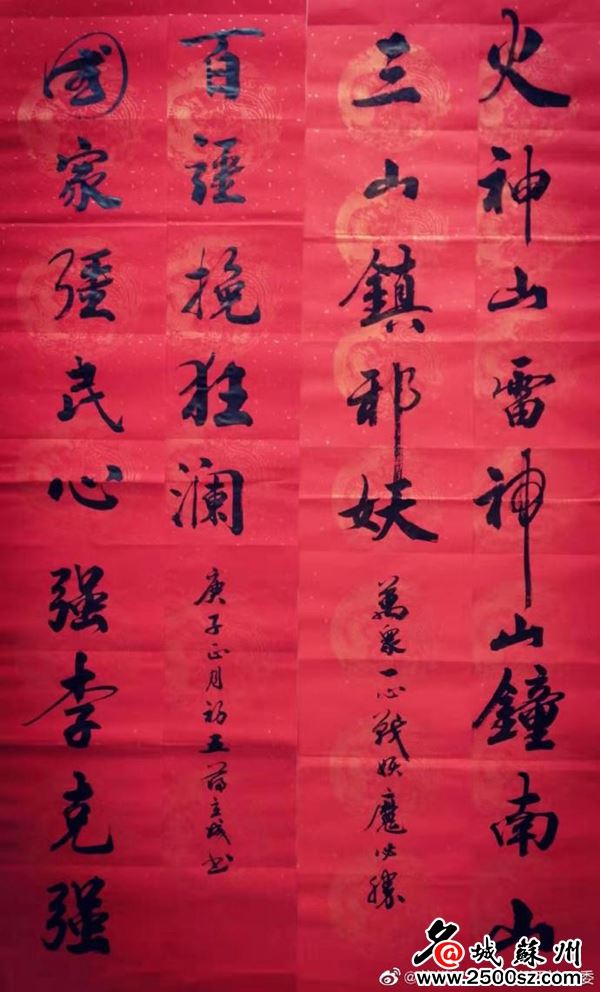 火神山雷神山鐘南山
三山鎮邪妖
萬眾一心戰妖魔必勝
百彊挽狂澜
庚子正月初五
國家彊民心强李克强
名@城蘇州
www.2500sz.com